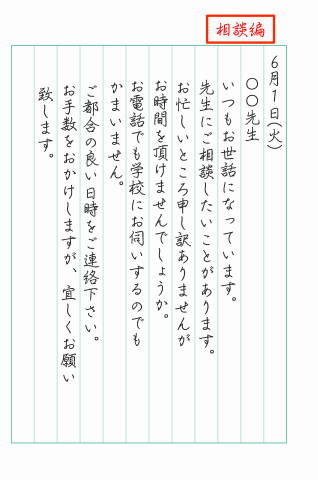 相談編
6月1日(火)
〇〇先生
いつもお世話になっています。
先生にご相談したいことがあります。
お忙しいところ申し訳ありませんが
お時間を頂けませんでしょうか。
お電話でも学校にお伺いするのでも
かまいません。
ご都合の良い日時をご連絡下さい。
お手数をおかけしますが、宜しくお願い
致します。